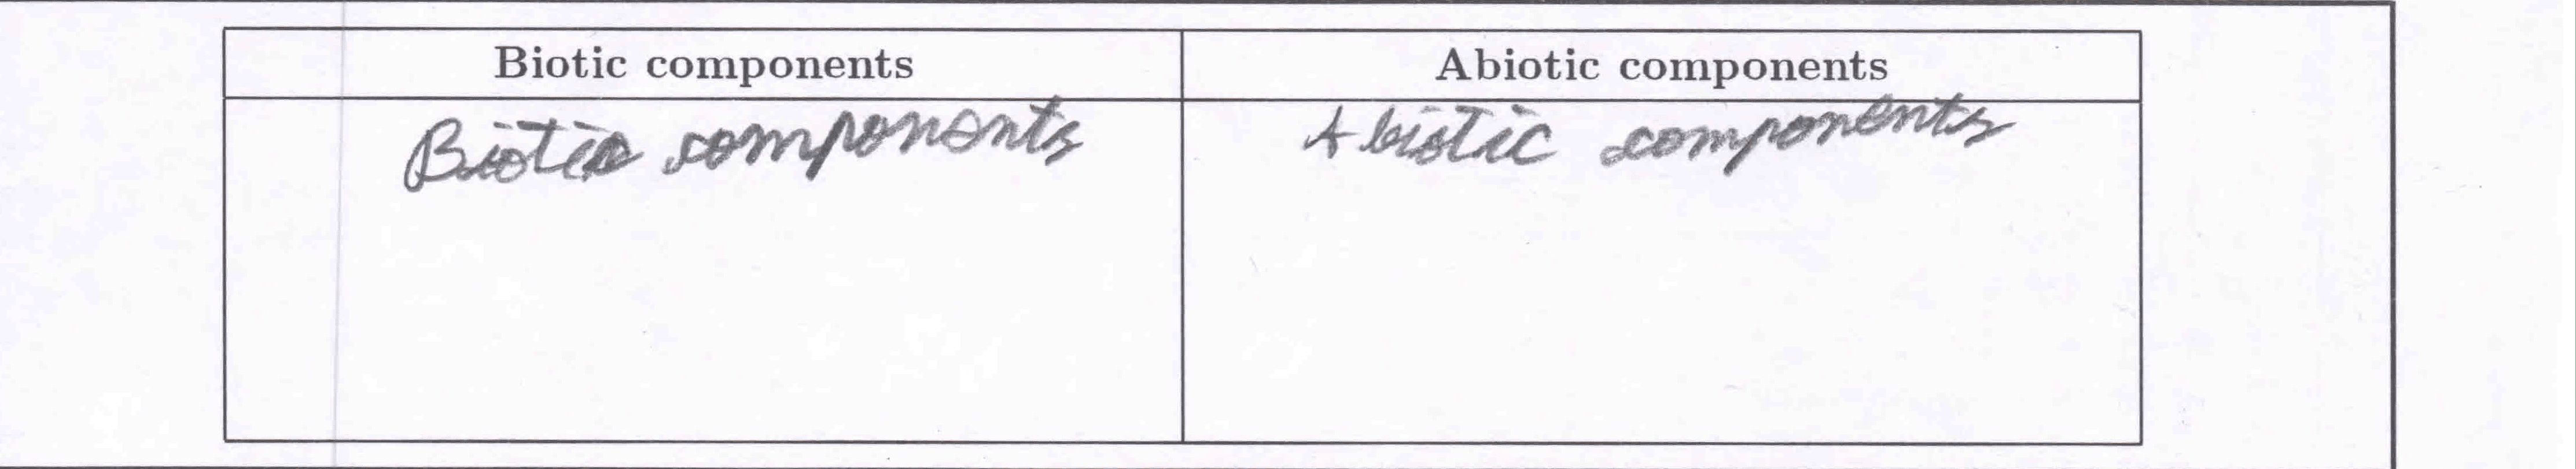 Biotic components Abiotic components
Biotic components Abiotic components